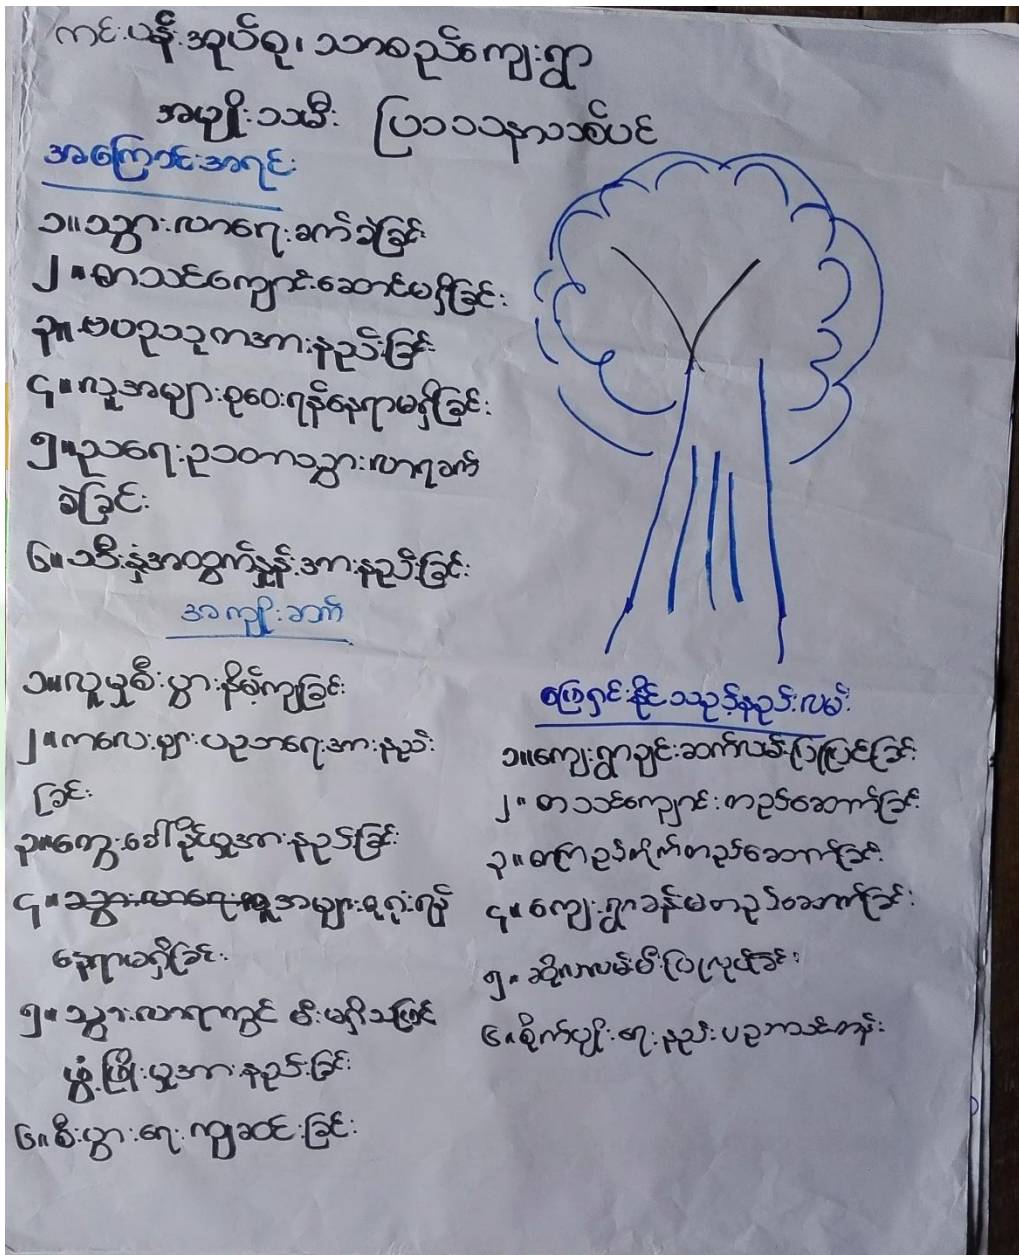 ကင်းပန်းအုပ်စု၊ သာစည်ကျေးရွာ
အမျိုးသမီး ပြဿနာသစ်ပင်
အကြောင်းအရင်း
၁။ သွားလာရေးခက်ခဲခြင်း
၂။ စာသင်ကျောင်းဆောင်မရှိခြင်း
၃။ ဗဟုသုတအားနည်းခြင်း
၄။ လူအများစုဝေးရန်နေရာမရှိခြင်း
၅။ ညရေးဥသတာသွားလာရခက်
ခဲခြင်း
၆။ သီးနှံအထွက်နှုန်းအားနည်းခြင်း
အကျိုးဆက်
၁။ လူမှုစီးပွားနိမ့်ကျခြင်း
၂။ ကလေးများပညာရေးအားနည်း
ခြင်း
၃။ တွေးခေါ်နိုင်မှုအားနည်းခြင်း
၄။ လူအများစုရုံးရန်
နေရာမရှိခြင်း
၅။ သွားလာရာတွင် မီးမရှိသဖြင့်
ဖွံ့ဖြိုးမှုအားနည်းခြင်း
၆။ စီးပွားရေးကျဆင်းခြင်း
ဖြေရှင်းနိုင်သည့်နည်းလမ်း
၁။ ကျေးရွာချင်းဆက်လမ်းပြုပြင်ခြင်း
၂။ စာသင်ကျောင်းတည်ဆောက်ခြင်း
၃။ စာကြည့်တိုက်တည်ဆောက်ခြင်း
၄။ ကျေးရွာခန်းမတည်ဆောက်ခြင်း
၅။ ဆိုလာလမ်းမီးပြုလုပ်ခြင်း
၆။ စိုက်ပျိုးရေးနည်းပညာသင်တန်း